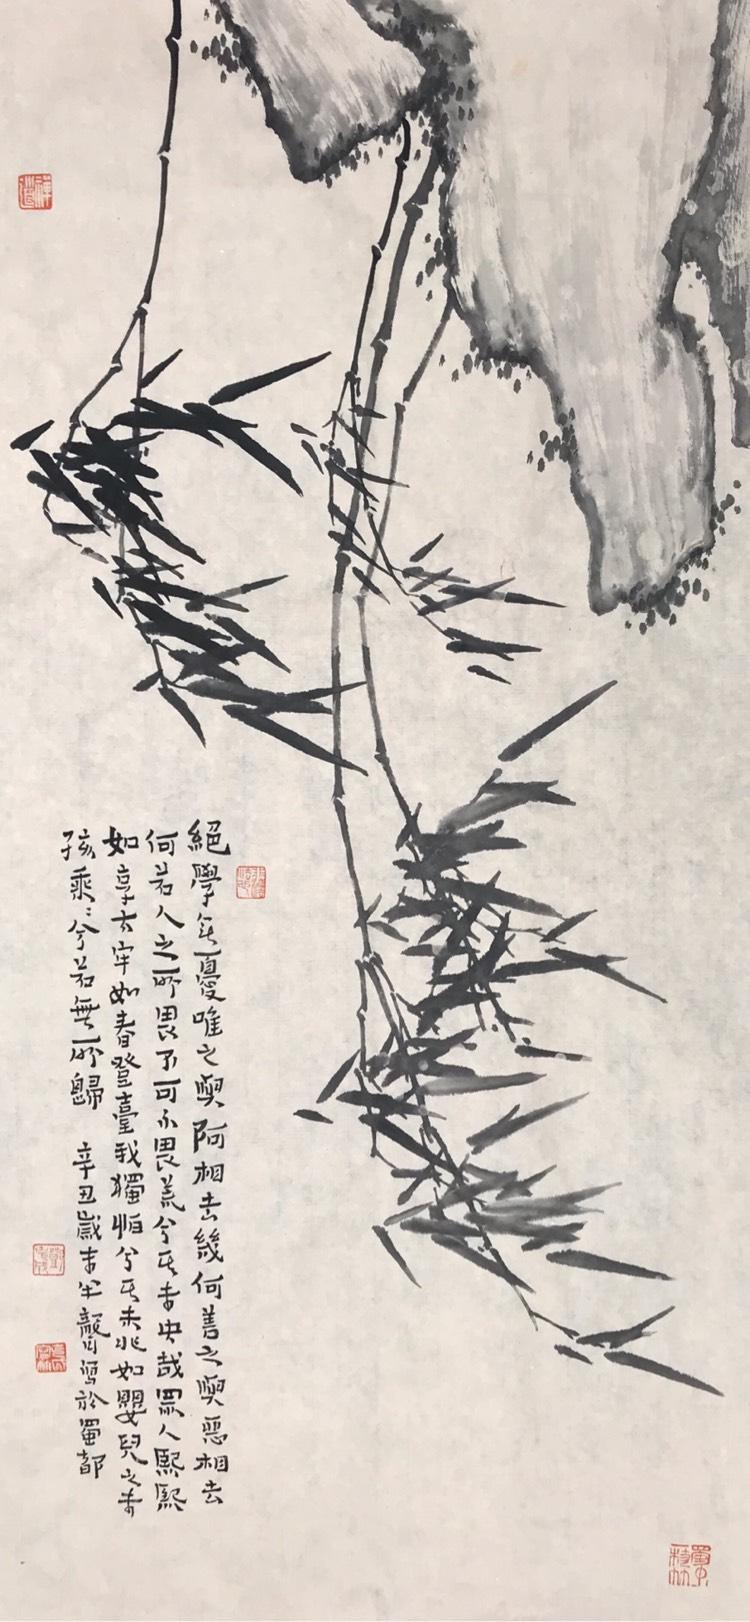 絕學無憂唯之與阿相去幾何善之與惡相去
何若人之所畏不可不畏荒兮其未央哉眾人熙熙
如享太牢如春登臺我獨怕兮其未兆如嬰兒之未
孩乘乘兮若無所歸 辛丑歲末半聾寫於蜀都